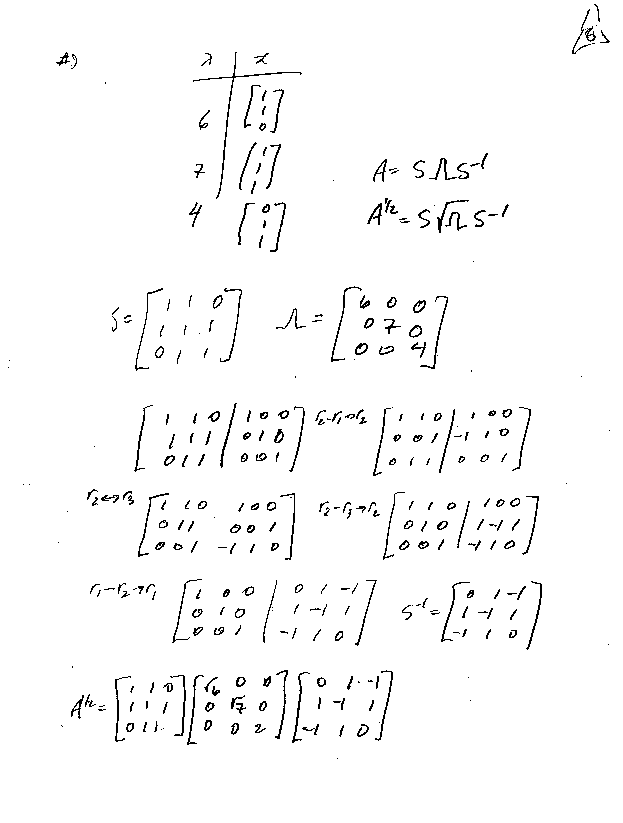 8
#)
λ | x
6 [1 1 0]
7 [1 1 1]
4 [0 1 1]
A = SΛS⁻¹
A^½ = S√Λ S⁻¹
S = [1 1 0; 1 1 1; 0 1 1] Λ = [6 0 0; 0 7 0; 0 0 4]
[1 1 0 | 1 0 0; 1 1 1 | 0 1 0; 0 1 1 | 0 0 1] r₂-r₁→r₂ [1 1 0 | 1 0 0; 0 0 1 | -1 1 0; 0 1 1 | 0 0 1]
r₂↔r₃ [1 1 0 1 0 0; 0 1 1 0 0 1; 0 0 1 -1 1 0] r₂-r₃→r₂ [1 1 0 | 1 0 0; 0 1 0 | 1 -1 1; 0 0 1 | -1 1 0]
r₁-r₂→r₁ [1 0 0 | 0 1 -1; 0 1 0 | 1 -1 1; 0 0 1 | -1 1 0] S⁻¹ = [0 1 -1; 1 -1 1; -1 1 0]
A^½ = [1 1 0; 1 1 1; 0 1 1] [√6 0 0; 0 √7 0; 0 0 2] [0 1 -1; 1 -1 1; -1 1 0]